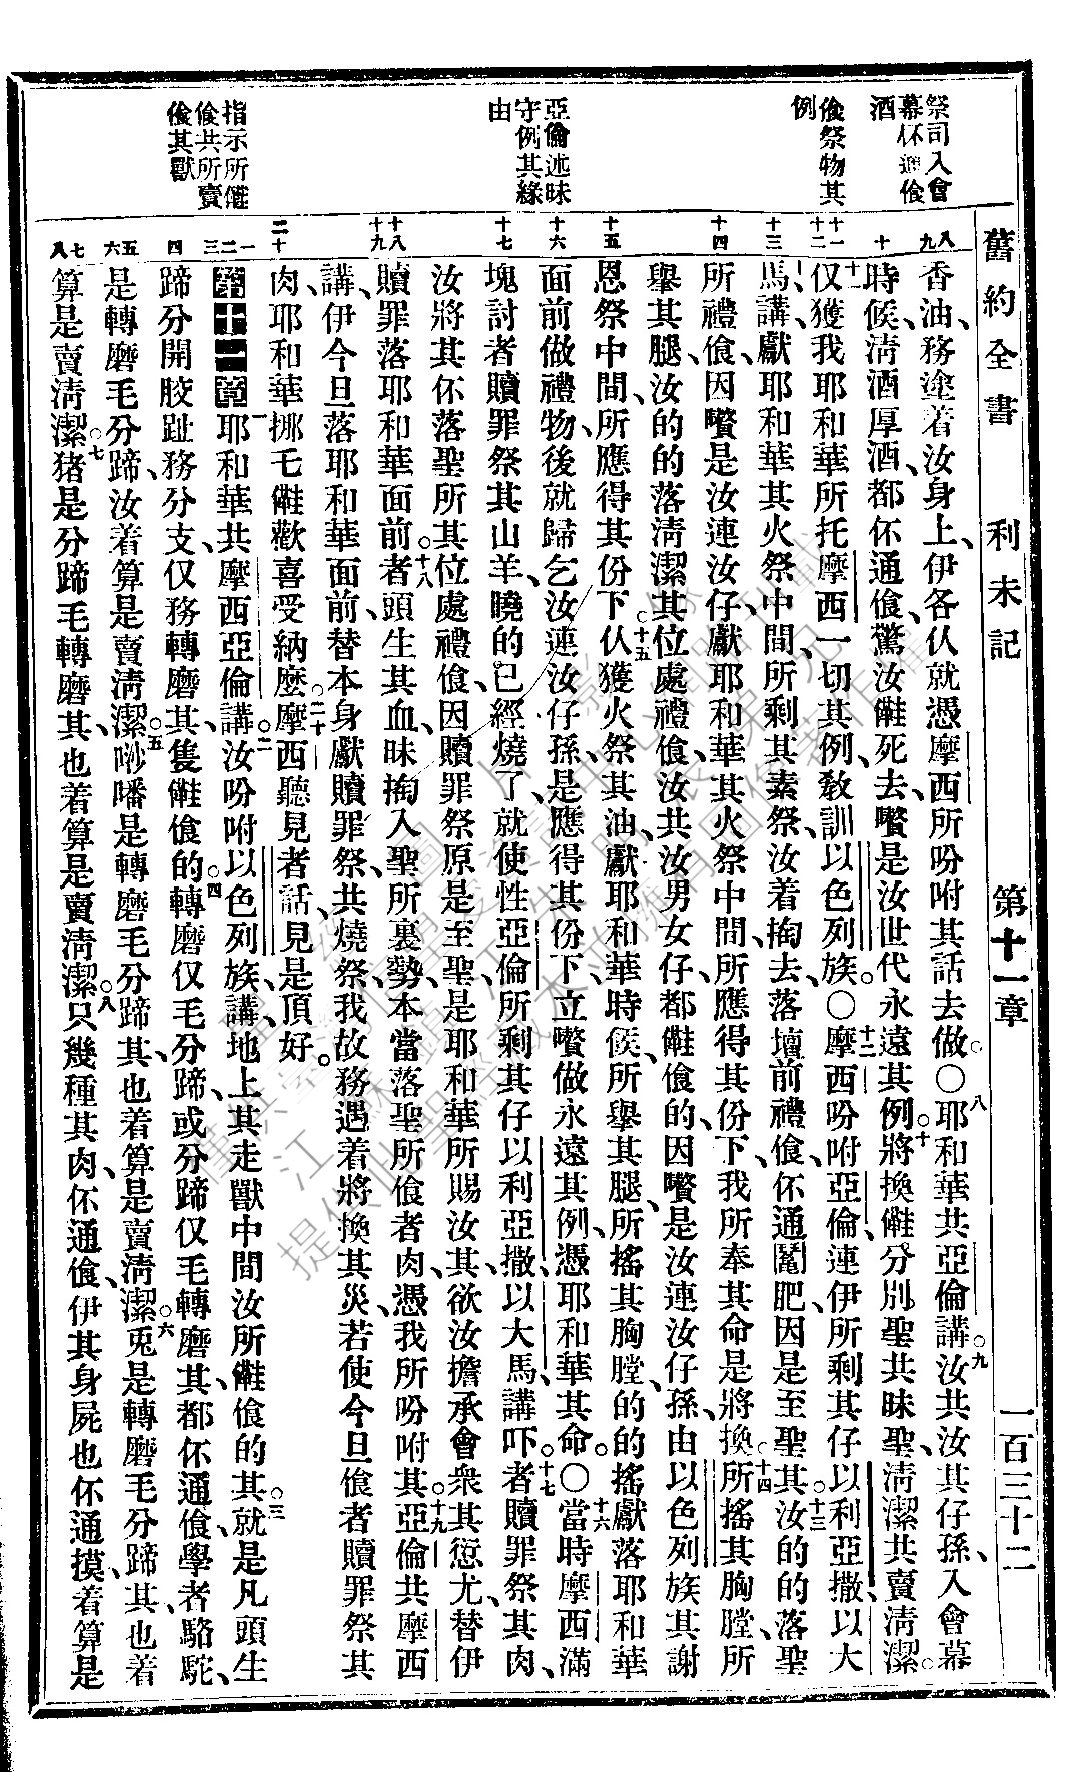 舊約全書 利未記 第十一章 一百三十二
祭司入會
幕伓通飡
酒
飡祭物其
例
亞倫述昧
守例其緣
由
指示所㑚
飡共所賣
飡其獸
八九 十 十一十二 十三 十四 十五 十六 十七 十八十九 二十 一二三 四 五六 七八
香油、務塗着汝身上、伊各仈就憑摩西所吩咐其話去做。〇八耶和華共亞倫講、九汝共汝其仔孫、入會幕
時候、淸酒厚酒、都伓通飡、驚汝㑚死去、嚽是汝世代永遠其例。十將換㑚分別聖共昧聖、淸潔共賣淸潔。
十一仅獲我耶和華所托摩西一切其例、敎訓以色列族。〇十二摩西吩咐亞倫、連伊所剩其仔以利亞撒、以大
馬、講、獻耶和華其火祭中間、所剩其素祭、汝着掏去落壇前禮飡、伓通䦧肥、因是至聖其。十三汝的的落聖
所禮飡、因嚽是汝連汝仔、獻耶和華其火祭中間、所應得其份下、我所奉其命是將換。十四所搖其胸膛、所
舉其腿、汝的的落淸潔其位處禮飡、汝共汝男女仔、都㑚飡的、因嚽是汝連汝仔孫、由以色列族其謝
恩祭中間、所應得其份下。十五仈獲火祭其油、獻耶和華時候、所舉其腿、所搖其胸膛、的的搖獻落耶和華
面前做禮物、後就歸乞汝連汝仔孫、是應得其份下、立嚽做永遠其例、憑耶和華其命。〇十六當時摩西滿
塊討者贖罪祭其山羊、曉的已經燒了、就使性亞倫所剩其仔以利亞撒、以大馬、講吓。十七者贖罪祭其肉、
汝將其伓落聖所其位處禮飡、因贖罪祭原是至聖、是耶和華所賜汝其、欲汝擔承會衆其愆尤、替伊
贖罪落耶和華面前。十八者頭生其血、昧掏入聖所裏勢、本當落聖所飡者肉、憑我所吩咐其。十九亞倫共摩西
講、伊今旦落耶和華面前、替本身獻贖罪祭、共燒祭、我故務遇着將換其災、若使今旦飡者贖罪祭其
肉、耶和華挪乇㑚歡喜受納麼。二十摩西聽見者話、見是頂好。
第十一章 一耶和華共摩西亞倫講。二汝吩咐以色列族、講、地上其走獸中間、汝所㑚飡的其。三就是凡頭生、
蹄分開、胶趾務分支、仅務轉磨其、隻㑚飡的。四轉磨仅毛分蹄、或分蹄仅毛轉磨其、都伓通飡、學者駱駝、
是轉磨毛分蹄、汝着算是賣淸潔。五𠯿噃是轉磨毛分蹄其、也着算是賣淸潔。六兎是轉磨毛分蹄其、也着
算是賣淸潔。七猪是分蹄毛轉磨其、也着算是賣淸潔。八只幾種其肉、伓通飡、伊其身屍也伓通摸、着算是